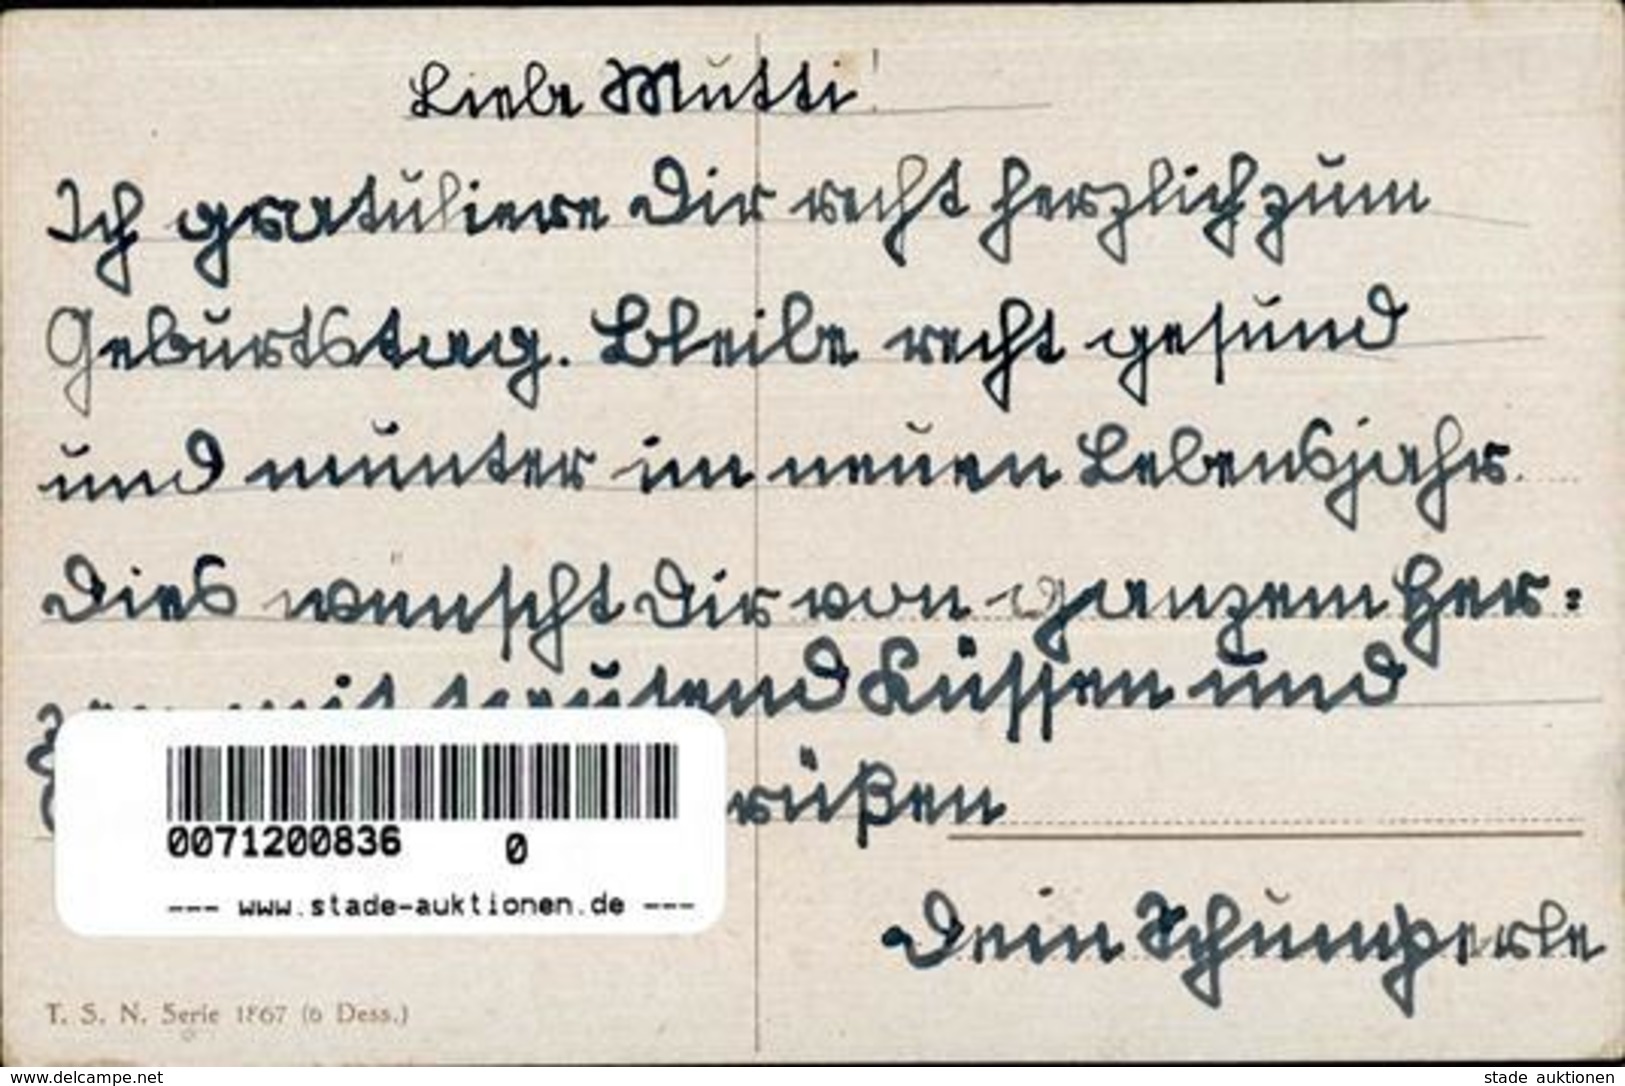 Liebe Mutti!
Ich gratuliere Dir recht herzlich zum
Geburtstag. Bleibe recht gesund
und munter im neuen Lebensjahr.
Dies wünscht Dir von ganzem Her=
zen mit tausend Küssen und
rüßen
0071200836 0
--- www.stade-auktionen.de ---
Dein Schumperle
T. S. N. Serie 1867 (6 Dess.)
www.delcampe.net
stade auktionen